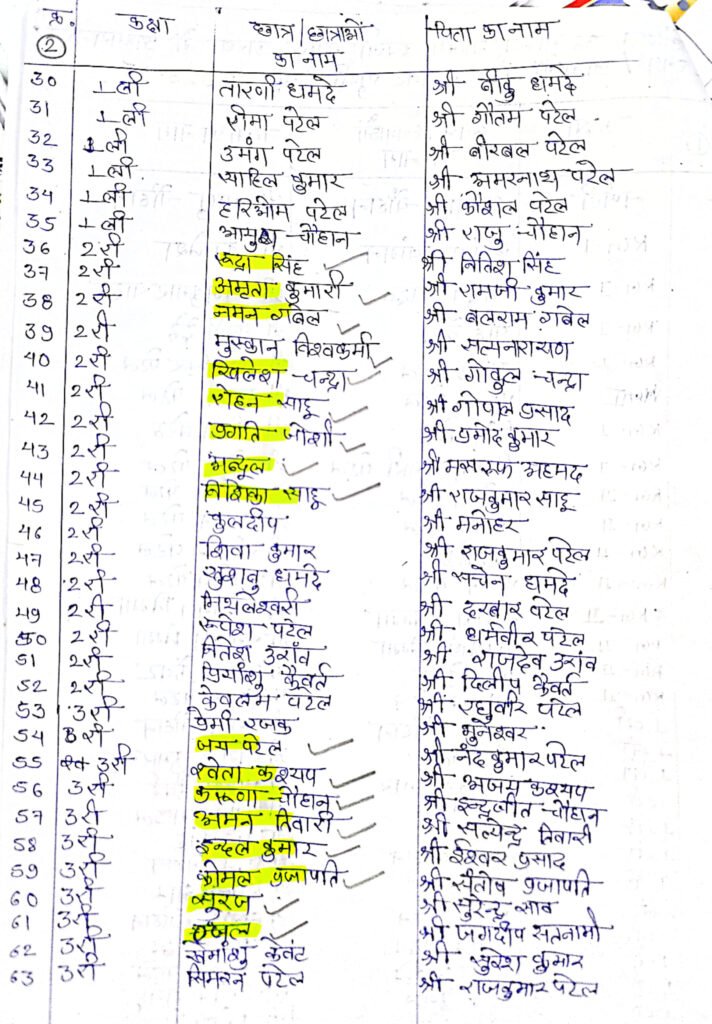 क्र. कक्षा छात्र/छात्राओं का नाम पिता का नाम
2
30 1ली तारणी धमदे श्री बीकु धमदे
31 1ली सीमा पटेल श्री गौतम पटेल
32 1ली उमंग पटेल श्री बीरबल पटेल
33 1ली साहिल कुमार श्री अमरनाथ पटेल
34 1ली हरिओम पटेल श्री कौशल पटेल
35 1ली आयुष चौहान श्री राजु चौहान
36 2री रूद्रा सिंह श्री नितिश सिंह
37 2री अमृता कुमारी श्री रामजी कुमार
38 2री नमन गबेल श्री बलराम गबेल
39 2री मुस्कान विश्वकर्मा श्री सत्यनारायण
40 2री खिलेश चन्द्रा श्री गोकुल चन्द्रा
41 2री रोहन साहू श्री गोपाल प्रसाद
42 2री प्रगति जोशी श्री प्रमोद कुमार
43 2री अब्दुल श्री अहमद
44 2री निशिका साहू श्री राजकुमार साहू
45 2री कुलदीप श्री मनोहर
46 2री शिवा कुमार श्री राजकुमार पटेल
47 2री खुशबु धमदे श्री सचेन धमदे
48 2री मिथलेश्वरी श्री दरबार पटेल
49 2री रूपेश पटेल श्री धर्मवीर पटेल
50 2री नितेश उरांव श्री राजदेव उरांव
51 2री प्रियांशु कैवर्त श्री दिलीप कैवर्त
52 2री केवलम पटेल श्री रघुवीर पटेल
53 3री प्रेमी रजक श्री भुनेश्वर
54 3री जय पटेल श्री नंदकुमार पटेल
55 3री श्वेता कश्यप श्री अजय कश्यप
56 3री करूणा चौहान श्री इन्द्रजीत चौहान
57 3री अमन तिवारी श्री सत्येन्द्र तिवारी
58 3री इन्दल कुमार श्री ईश्वर प्रसाद
59 3री कोमल प्रजापति श्री संतोष प्रजापति
60 3री सूरज श्री सुरेन्द्र साव
61 3री श्री जगदीप सतनामी
62 3री सेमांशु केवंट श्री सुरेश कुमार
63 3री सिमरन पटेल श्री राजकुमार पटेल